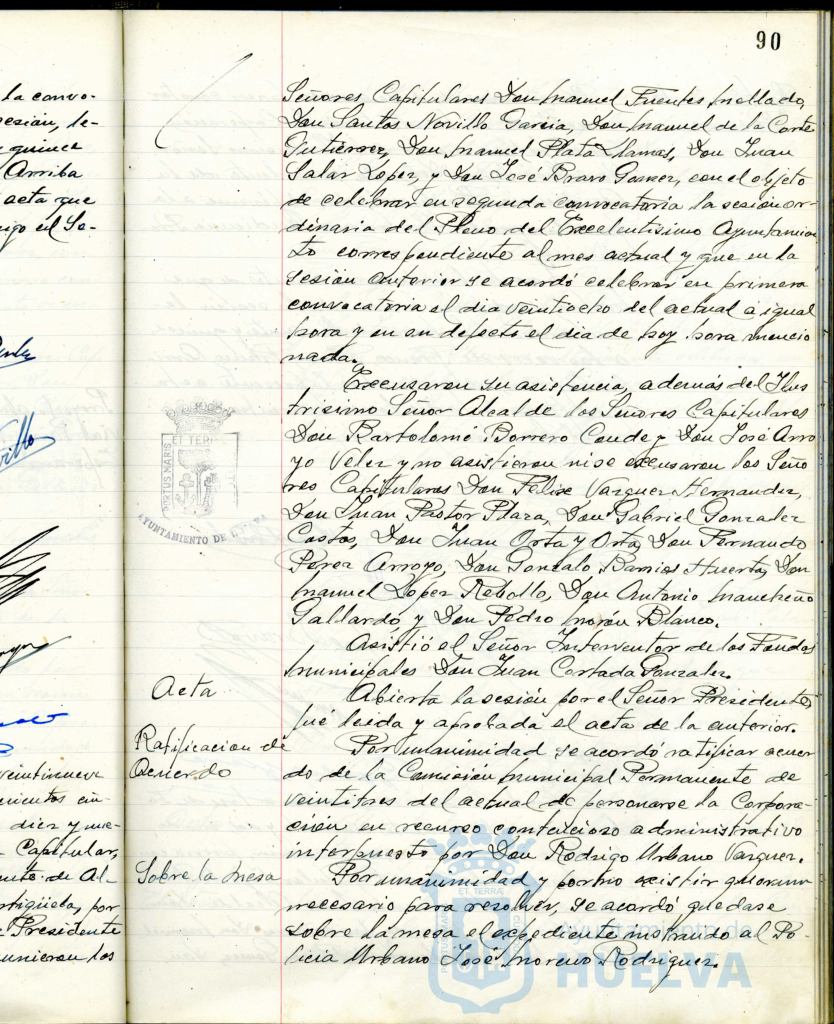 90
la convo-
esión, le-
quince
Arriba
acta que
migo el Se-
veintinueve
diez y nue-
Capitular,
ente de Al-
ortigüela, por
Presidente
unieron los
Señores Capitulares Don Manuel Fuentes Mellado,
Don Santos Novillo Garcia, Don Manuel de la Corte
Gutierrez, Don Manuel Plata Llamas, Don Juan
Salar Lopez, y Don José Bravo Gomez, con el objeto
de celebrar en segunda convocatoria la sesión or-
dinaria del Pleno del Excelentisimo Ayuntamien
to correspondiente al mes actual y que en la
sesión anterior se acordó celebrar en primera
convocatoria el dia veintiocho del actual a igual
hora y en su defecto el dia de hoy hora mencio
nada.
Excusaron su asistencia, además del Ilus
trisimo Señor Alcalde los Señores Capitulares
Don Bartolomé Borrero Conde y Don José Arro
yo Velez y no asistieron ni se excusaron los Seño
res Capitulares Don Felix Vazquez Hernandez,
Don Juan Pastor Plaza, Don Gabriel Gonzalez
Costos, Don Juan Orta y Orta, Don Fernando
Perez Arroyo, Don Gonzalo Barrios Huerta, Don
Manuel Lopez Rebollo, Don Antonio Mancheño
Gallardo, y Don Pedro Morón Blanco.
Asistió el Señor Interventor de los Fondos
Municipales Don Juan Cortada Gonzalez.
Acta
Abierta la sesión por el Señor Presidente,
fué leida y aprobada el acta de la anterior.
Ratificacion de
Acuerdo
Por unanimidad se acordó ratificar acuer
do de la Comisión Municipal Permanente de
veintitres del actual de personarse la Corpora-
ción en recurso contencioso administrativo
interpuesto por Don Rodrigo Urbano Vazquez.
Sobre la mesa
Por unanimidad y por no existir quorum
necesario para resolver, se acordó quedase
sobre la mesa el expediente instruido al Po-
licia Urbano José Moreno Rodriguez.
PORTUS MARIS
ET TERRÆ
AYUNTAMIENTO DE
Ayuntamiento de
HUELVA